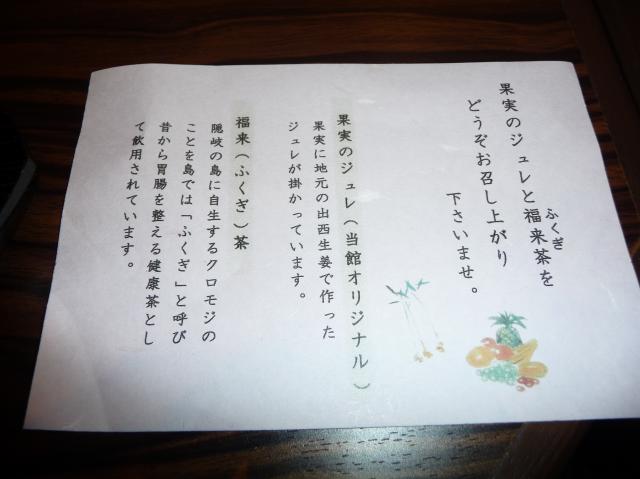 果実のジュレと福来茶を
ふくぎ
どうぞお召し上がり
下さいませ。
果実のジュレ(当館オリジナル)
果実に地元の出西生姜で作った
ジュレが掛かっています。
福来(ふくぎ)茶
隠岐の島に自生するクロモジの
ことを島では「ふくぎ」と呼び
昔から胃腸を整える健康茶とし
て飲用されています。